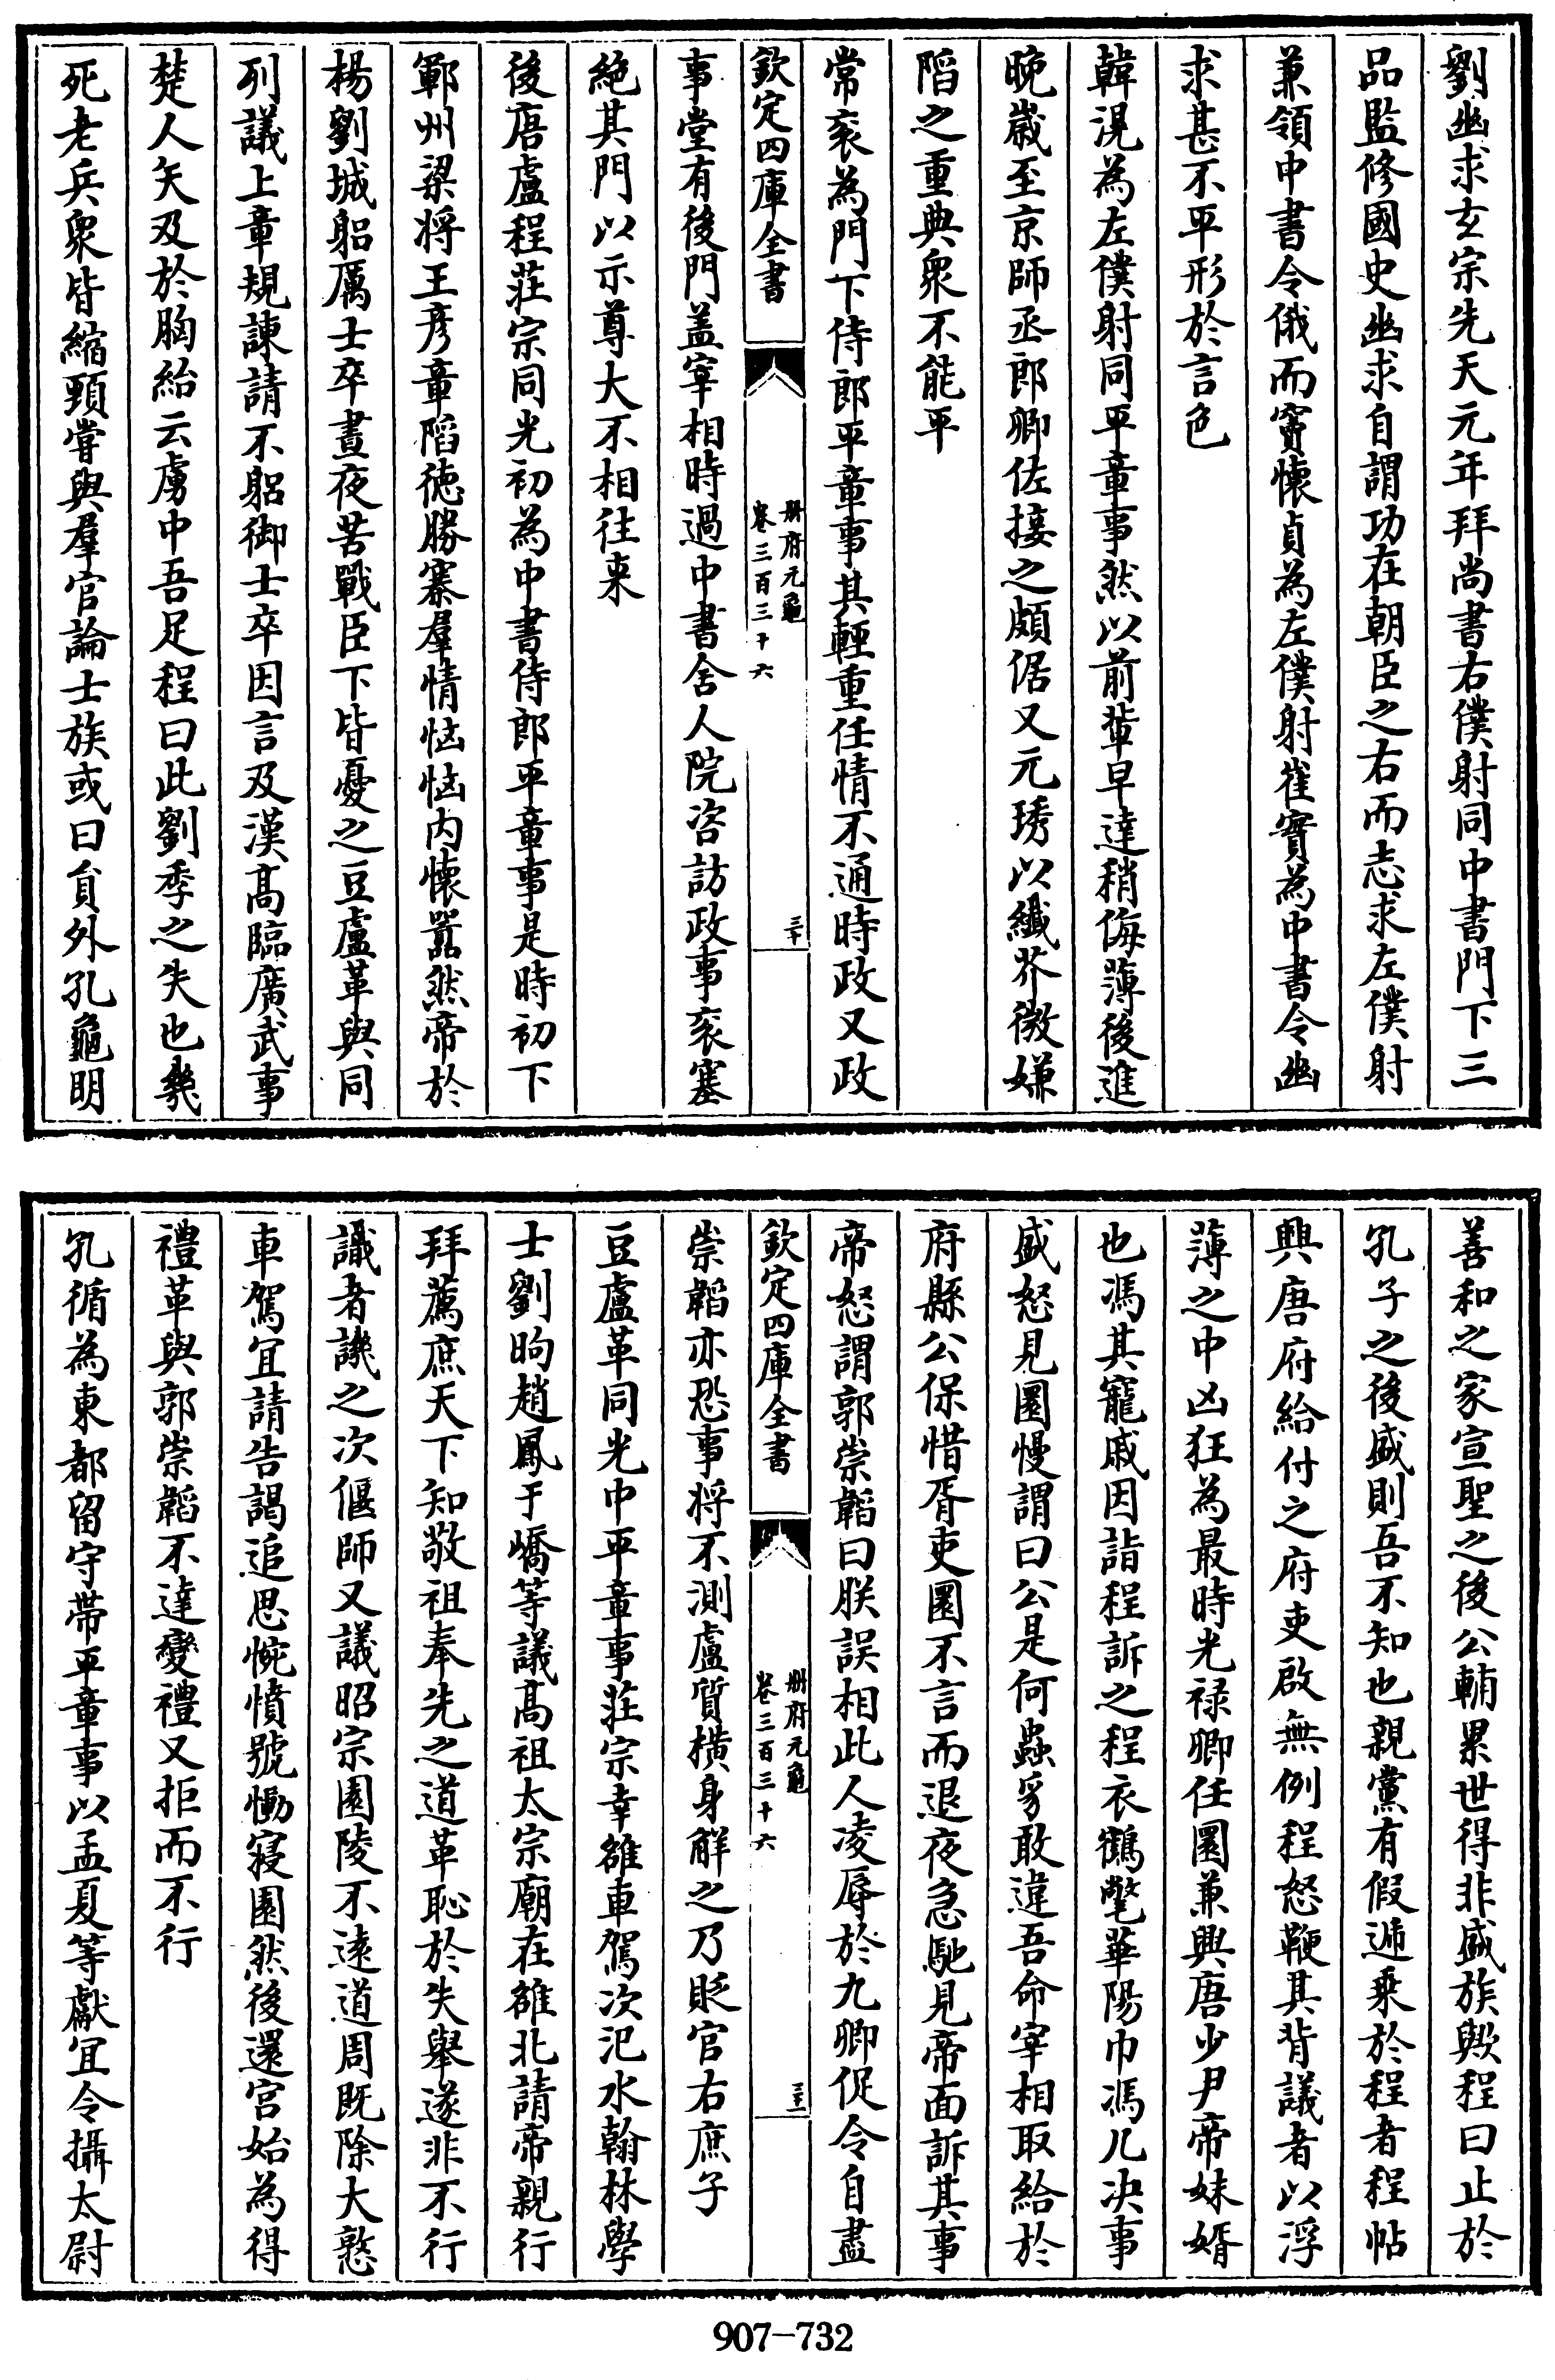 劉幽求玄宗先天元年拜尚書右僕射同中書門下三
品監修國史幽求自謂功在朝臣之右而志求左僕射
兼領中書令俄而竇懷貞為左僕射崔寔為中書令幽
求甚不平形於言色
韓滉為左僕射同平章事然以前輩早達稍侮薄後進
晩歲至京師丞郎卿佐接之頗倨又元琇以纖芥微嫌
陷之重典衆不能平
常衮為門下侍郎平章事其輕重任情不通時政又政
欽定四庫全書
冊府元龜
卷三百三十六
三十
事堂有後門盖宰相時過中書舍人院咨訪政事衮塞
絶其門以示尊大不相往来
後唐盧程莊宗同光初為中書侍郎平章事是時初下
鄆州梁将王彦章陷徳勝寨羣情恟恟内懷嚣然帝於
楊劉城躬厲士卒晝夜苦戰臣下皆憂之豆盧革與同
列議上章規諌請不躬御士卒因言及漢髙臨廣武事
楚人矢及於胸紿云虜中吾足程曰此劉季之失也幾
死老兵衆皆縮頸嘗與羣官論士族或曰貟外孔龜明
善和之家宣聖之後公輔累世得非盛族歟程曰止於
孔子之後盛則吾不知也親黨有假逓乗於程者程帖
興唐府給付之府吏啟無例程怒鞭其背議者以浮
薄之中凶狂為最時光禄卿任圜兼興唐少尹帝妹婿
也馮其寵戚因詣程訴之程衣鶴氅華陽巾馮几决事
盛怒見圜慢謂曰公是何蟲豸敢違吾命宰相取給於
府縣公保惜胥吏圜不言而退夜急馳見帝面訴其事
帝怒謂郭崇韜曰朕誤相此人凌辱於九卿促令自盡
欽定四庫全書
冊府元龜
卷三百三十六
三十一
崇韜亦恐事将不測盧質横身觧之乃貶官右庶子
豆盧革同光中平章事莊宗幸雒車駕次汜水翰林學
士劉昫趙鳳于嶠等議髙祖太宗廟在雒北請帝親行
拜薦庶天下知敬祖奉先之道革恥於失舉遂非不行
識者譏之次偃師又議昭宗園陵不逺道周既除大憝
車駕宜請告謁追思惋憤號慟寢園然後還宫始為得
禮革與郭崇韜不達變禮又拒而不行
孔循為東都留守帶平章事以孟夏等獻宜令攝太尉
907-732